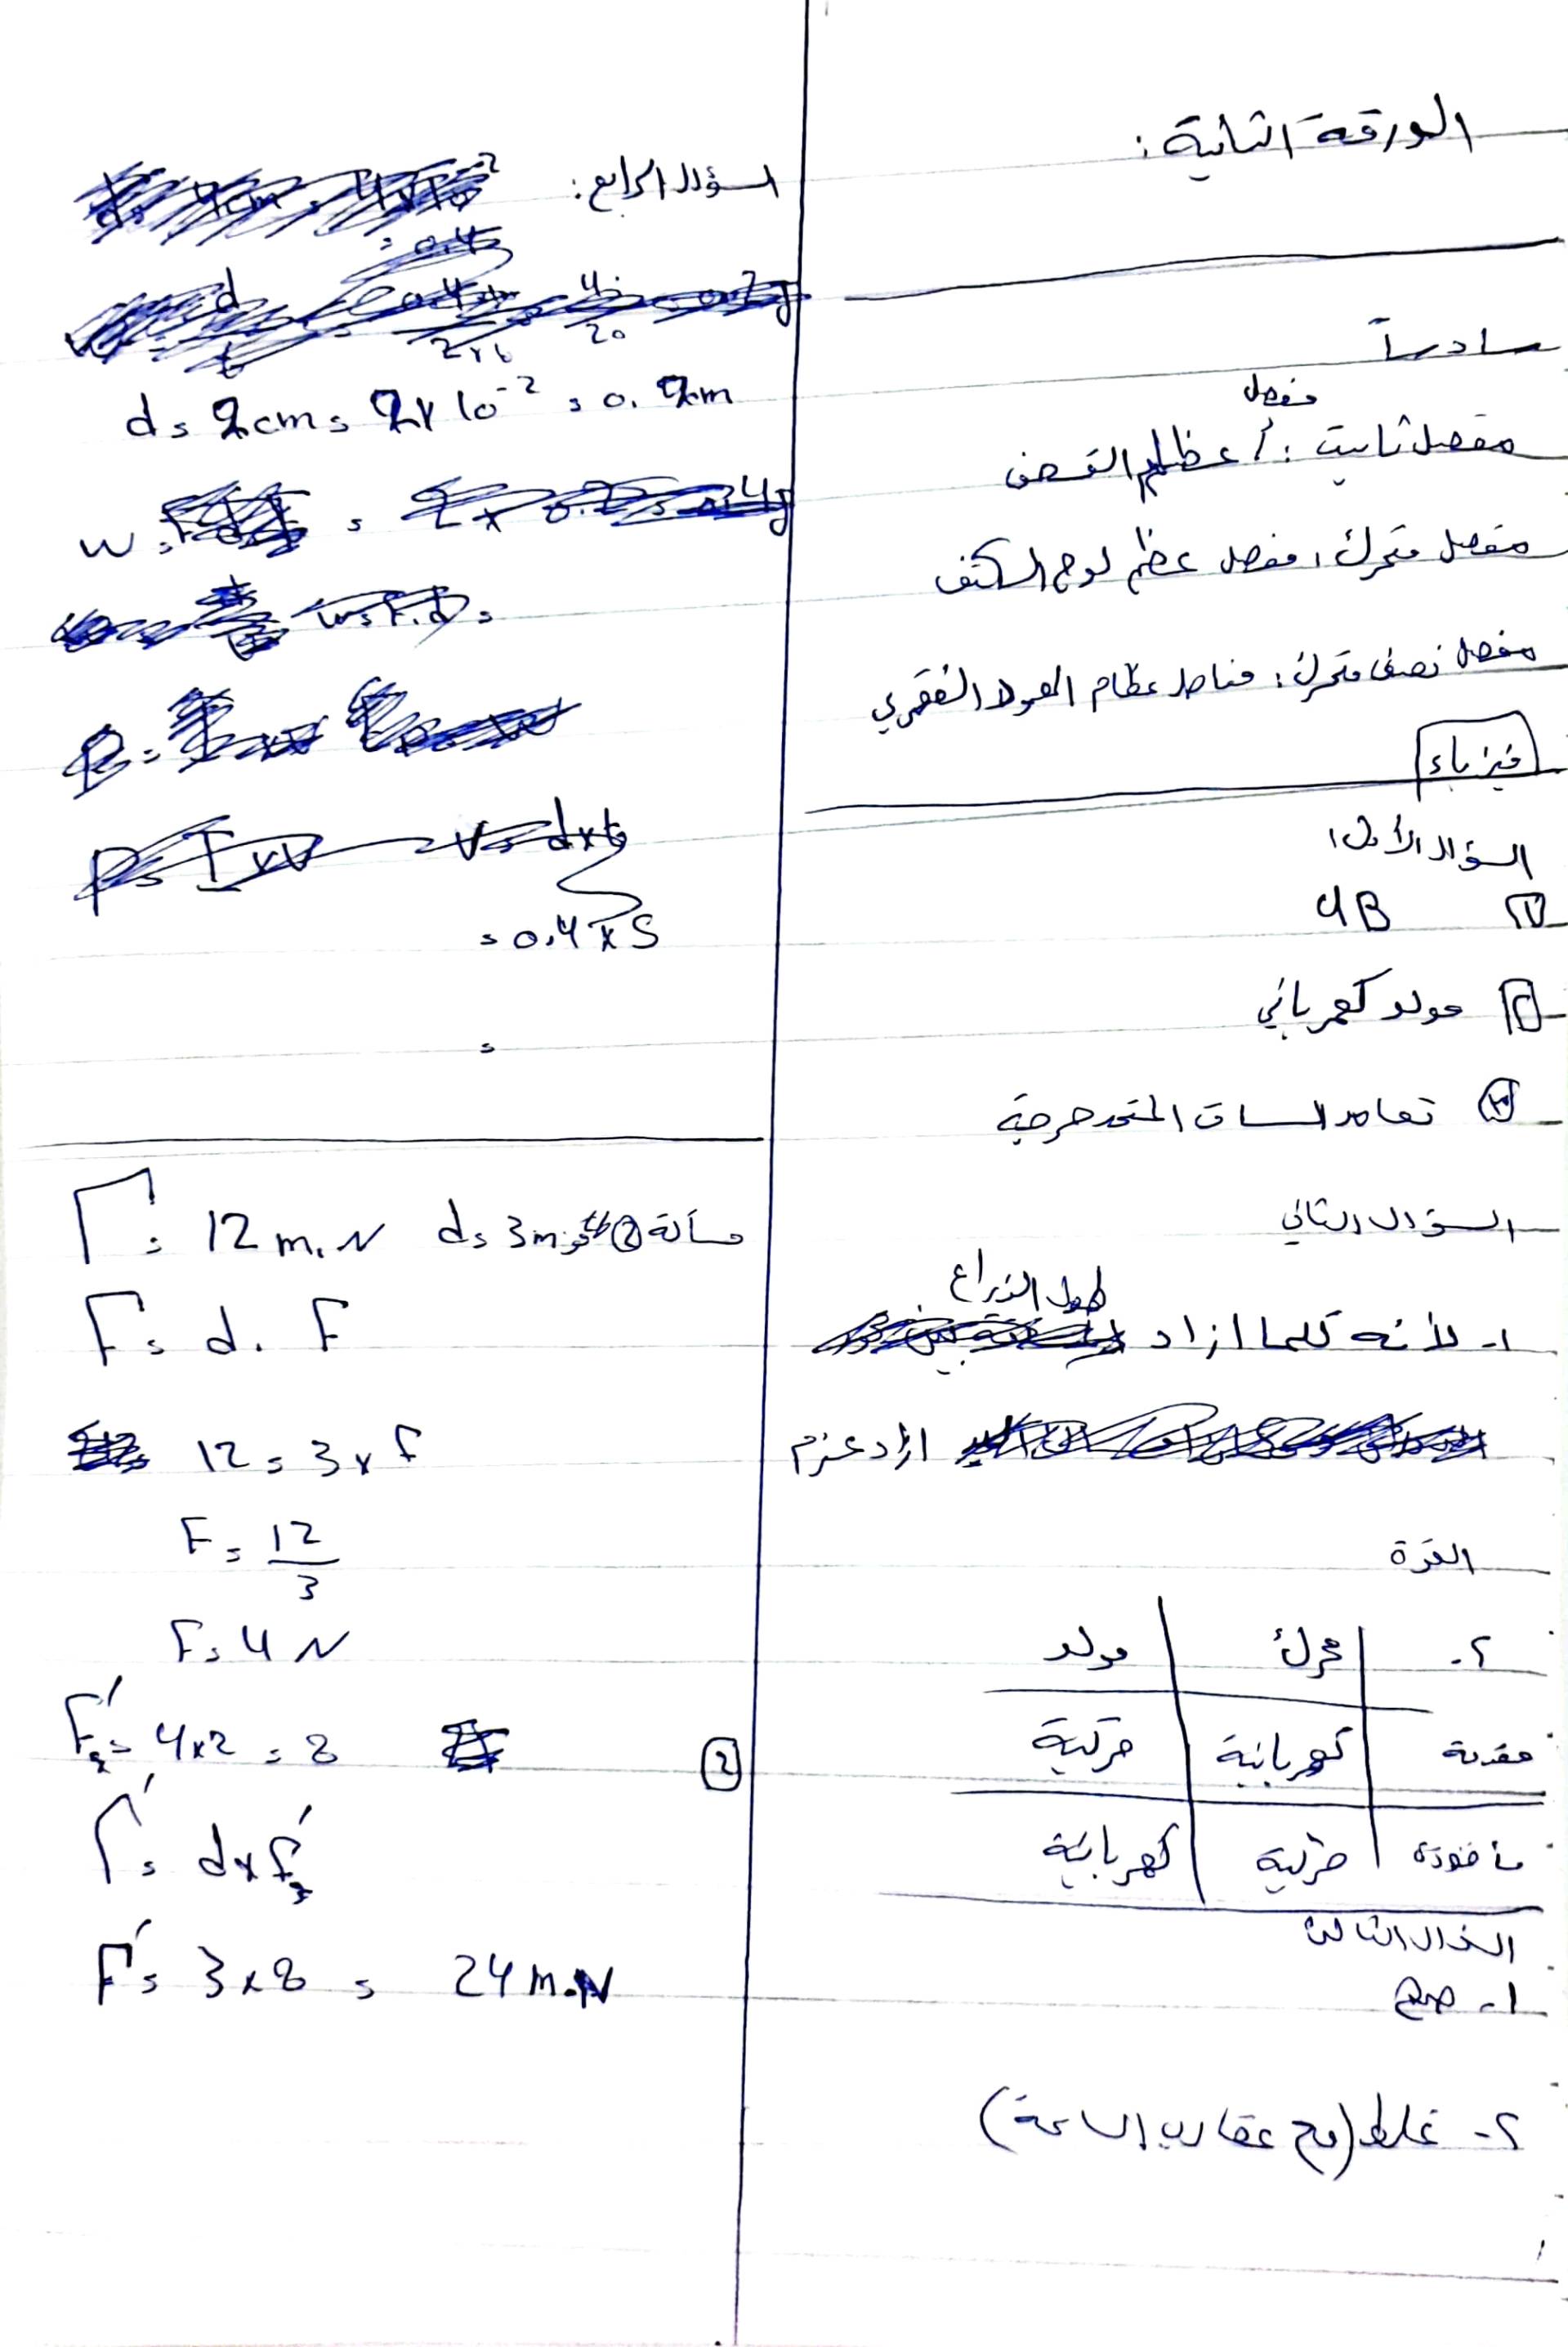 الورقة الثانية:
سادساً
مفصل ثابت: مفصل عظام القحف
مفصل متحرك: مفصل عظم لوح الكتف
مفصل نصف متحرك: مفاصل عظام العمود الفقري
فيزياء
السؤال الأول:
1 4B
2 مولد كهربائي
3 تعامد الساق المتدحرجة
السؤال الثاني
1- لأنه كلما ازاد طول الذراع
ازاد عزم
القوة
2- محرك مولد
مقدمة كهربائية حركية
مأخوذة حركية كهربائية
السؤال الثالث
1- صح
2- غلط (مع عقارب الساعة)
السؤال الرابع:
d = 2cm = 2x10⁻² = 0.2m
w =
= 0.4 x 5
=
مسألة 2 d = 3m Γ = 12 m.N
Γ = d . F
12 = 3 x F
F = 12/3
F = 4 N
2 F' = 4x2 = 8
Γ' = d x F'
Γ' = 3 x 8 = 24 m.N